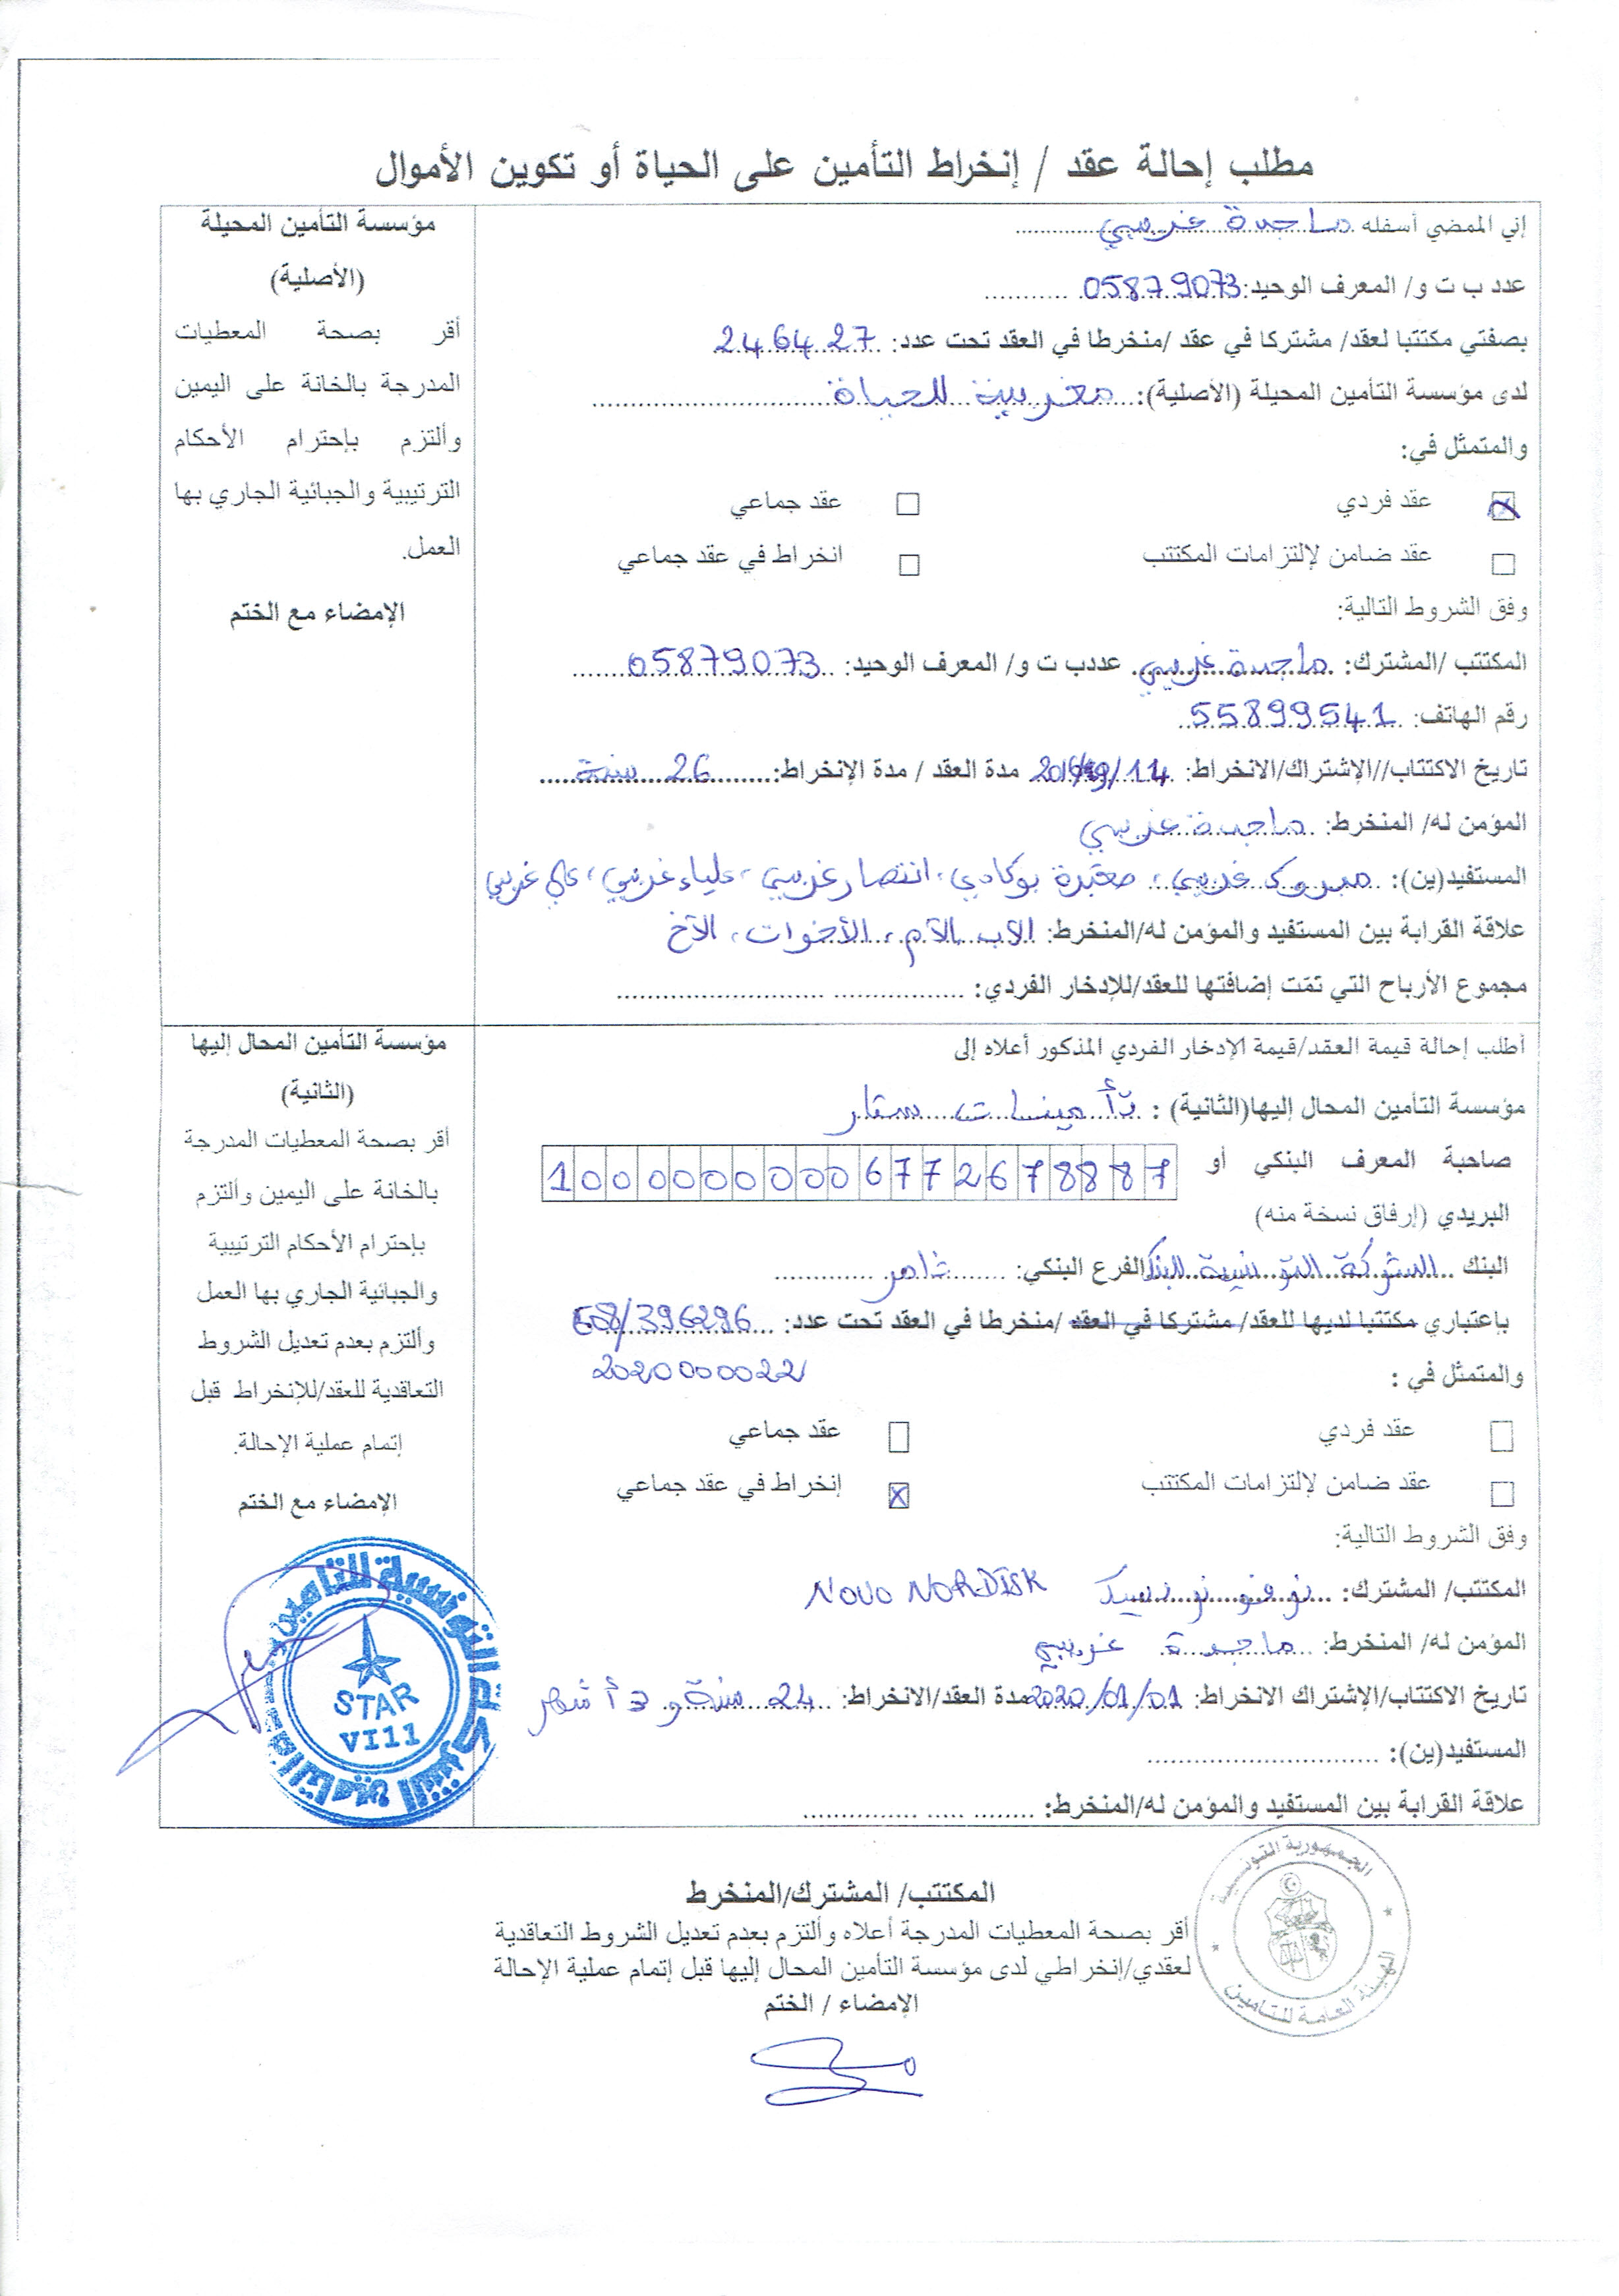 مطلب إحالة عقد / إنخراط التأمين على الحياة أو تكوين الأموال
إني الممضي أسفله ماجدة غربي
عدد ب ت و/ المعرف الوحيد: 05879073
بصفتي مكتتبا لعقد/ مشتركا في عقد /منخرطا في العقد تحت عدد: 246427
لدى مؤسسة التأمين المحيلة (الأصلية): مغربية للحياة
والمتمثل في:
عقد فردي
عقد جماعي
عقد ضامن لإلتزامات المكتتب
انخراط في عقد جماعي
وفق الشروط التالية:
المكتتب /المشترك: ماجدة غربي عددب ت و/ المعرف الوحيد: 05879073
رقم الهاتف: 55899541
تاريخ الاكتتاب//الإشتراك/الانخراط: مدة العقد / مدة الإنخراط: 26 سنة
المؤمن له/ المنخرط: ماجدة غربي
المستفيد(ين): مبروك غربي، بوكادي، انتصار غربي، علياء غربي، علي غربي
علاقة القرابة بين المستفيد والمؤمن له/المنخرط: الأب، الأم، الأخوات، الأخ
مجموع الأرباح التي تمّت إضافتها للعقد/للإدخار الفردي:
مؤسسة التأمين المحيلة
(الأصلية)
أقر بصحة المعطيات
المدرجة بالخانة على اليمين
وألتزم بإحترام الأحكام
الترتيبية والجبائية الجاري بها
العمل.
الإمضاء مع الختم
أطلب إحالة قيمة العقد/قيمة الإدخار الفردي المذكور أعلاه إلى
مؤسسة التأمين المحال إليها(الثانية) : تأمينات ستار
صاحبة المعرف البنكي أو 10000000006772678887
البريدي (إرفاق نسخة منه)
البنك الشركة التونسية للبنك الفرع البنكي:
بإعتباري مكتتبا لديها للعقد/ مشتركا في العقد /منخرطا في العقد تحت عدد: 608/396296
2020000022
والمتمثل في :
عقد فردي
عقد جماعي
عقد ضامن لإلتزامات المكتتب
إنخراط في عقد جماعي
وفق الشروط التالية:
المكتتب/ المشترك: نوفو نورديسك NOVO NORDISK
المؤمن له/ المنخرط: ماجدة غربي
تاريخ الاكتتاب/الإشتراك الانخراط: 2020/01/01 مدة العقد/الانخراط: 24 سنة و 3 أشهر
المستفيد(ين):
علاقة القرابة بين المستفيد والمؤمن له/المنخرط:
مؤسسة التأمين المحال إليها
(الثانية)
أقر بصحة المعطيات المدرجة
بالخانة على اليمين وألتزم
بإحترام الأحكام الترتيبية
والجبائية الجاري بها العمل
وألتزم بعدم تعديل الشروط
التعاقدية للعقد/للإنخراط قبل
إتمام عملية الإحالة.
الإمضاء مع الختم
STAR
VI11
المكتتب/ المشترك/المنخرط
أقر بصحة المعطيات المدرجة أعلاه وألتزم بعدم تعديل الشروط التعاقدية
لعقدي/إنخراطي لدى مؤسسة التأمين المحال إليها قبل إتمام عملية الإحالة
الإمضاء / الختم
الجمهورية التونسية
الهيئة العامة للتأمين